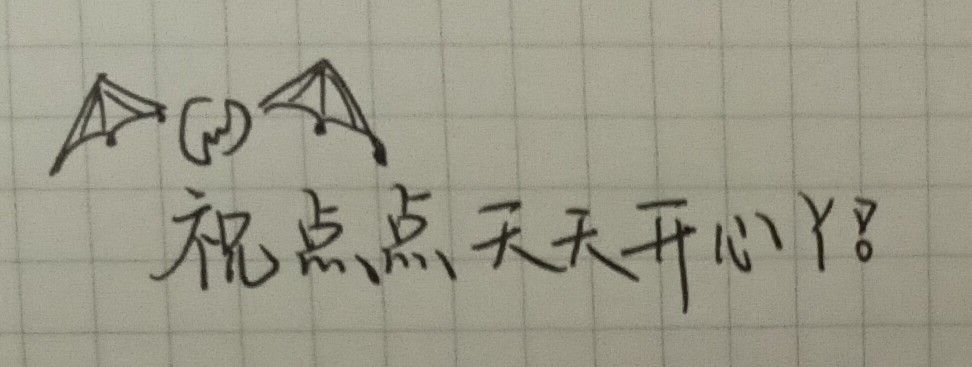 祝点点天天开心丫!